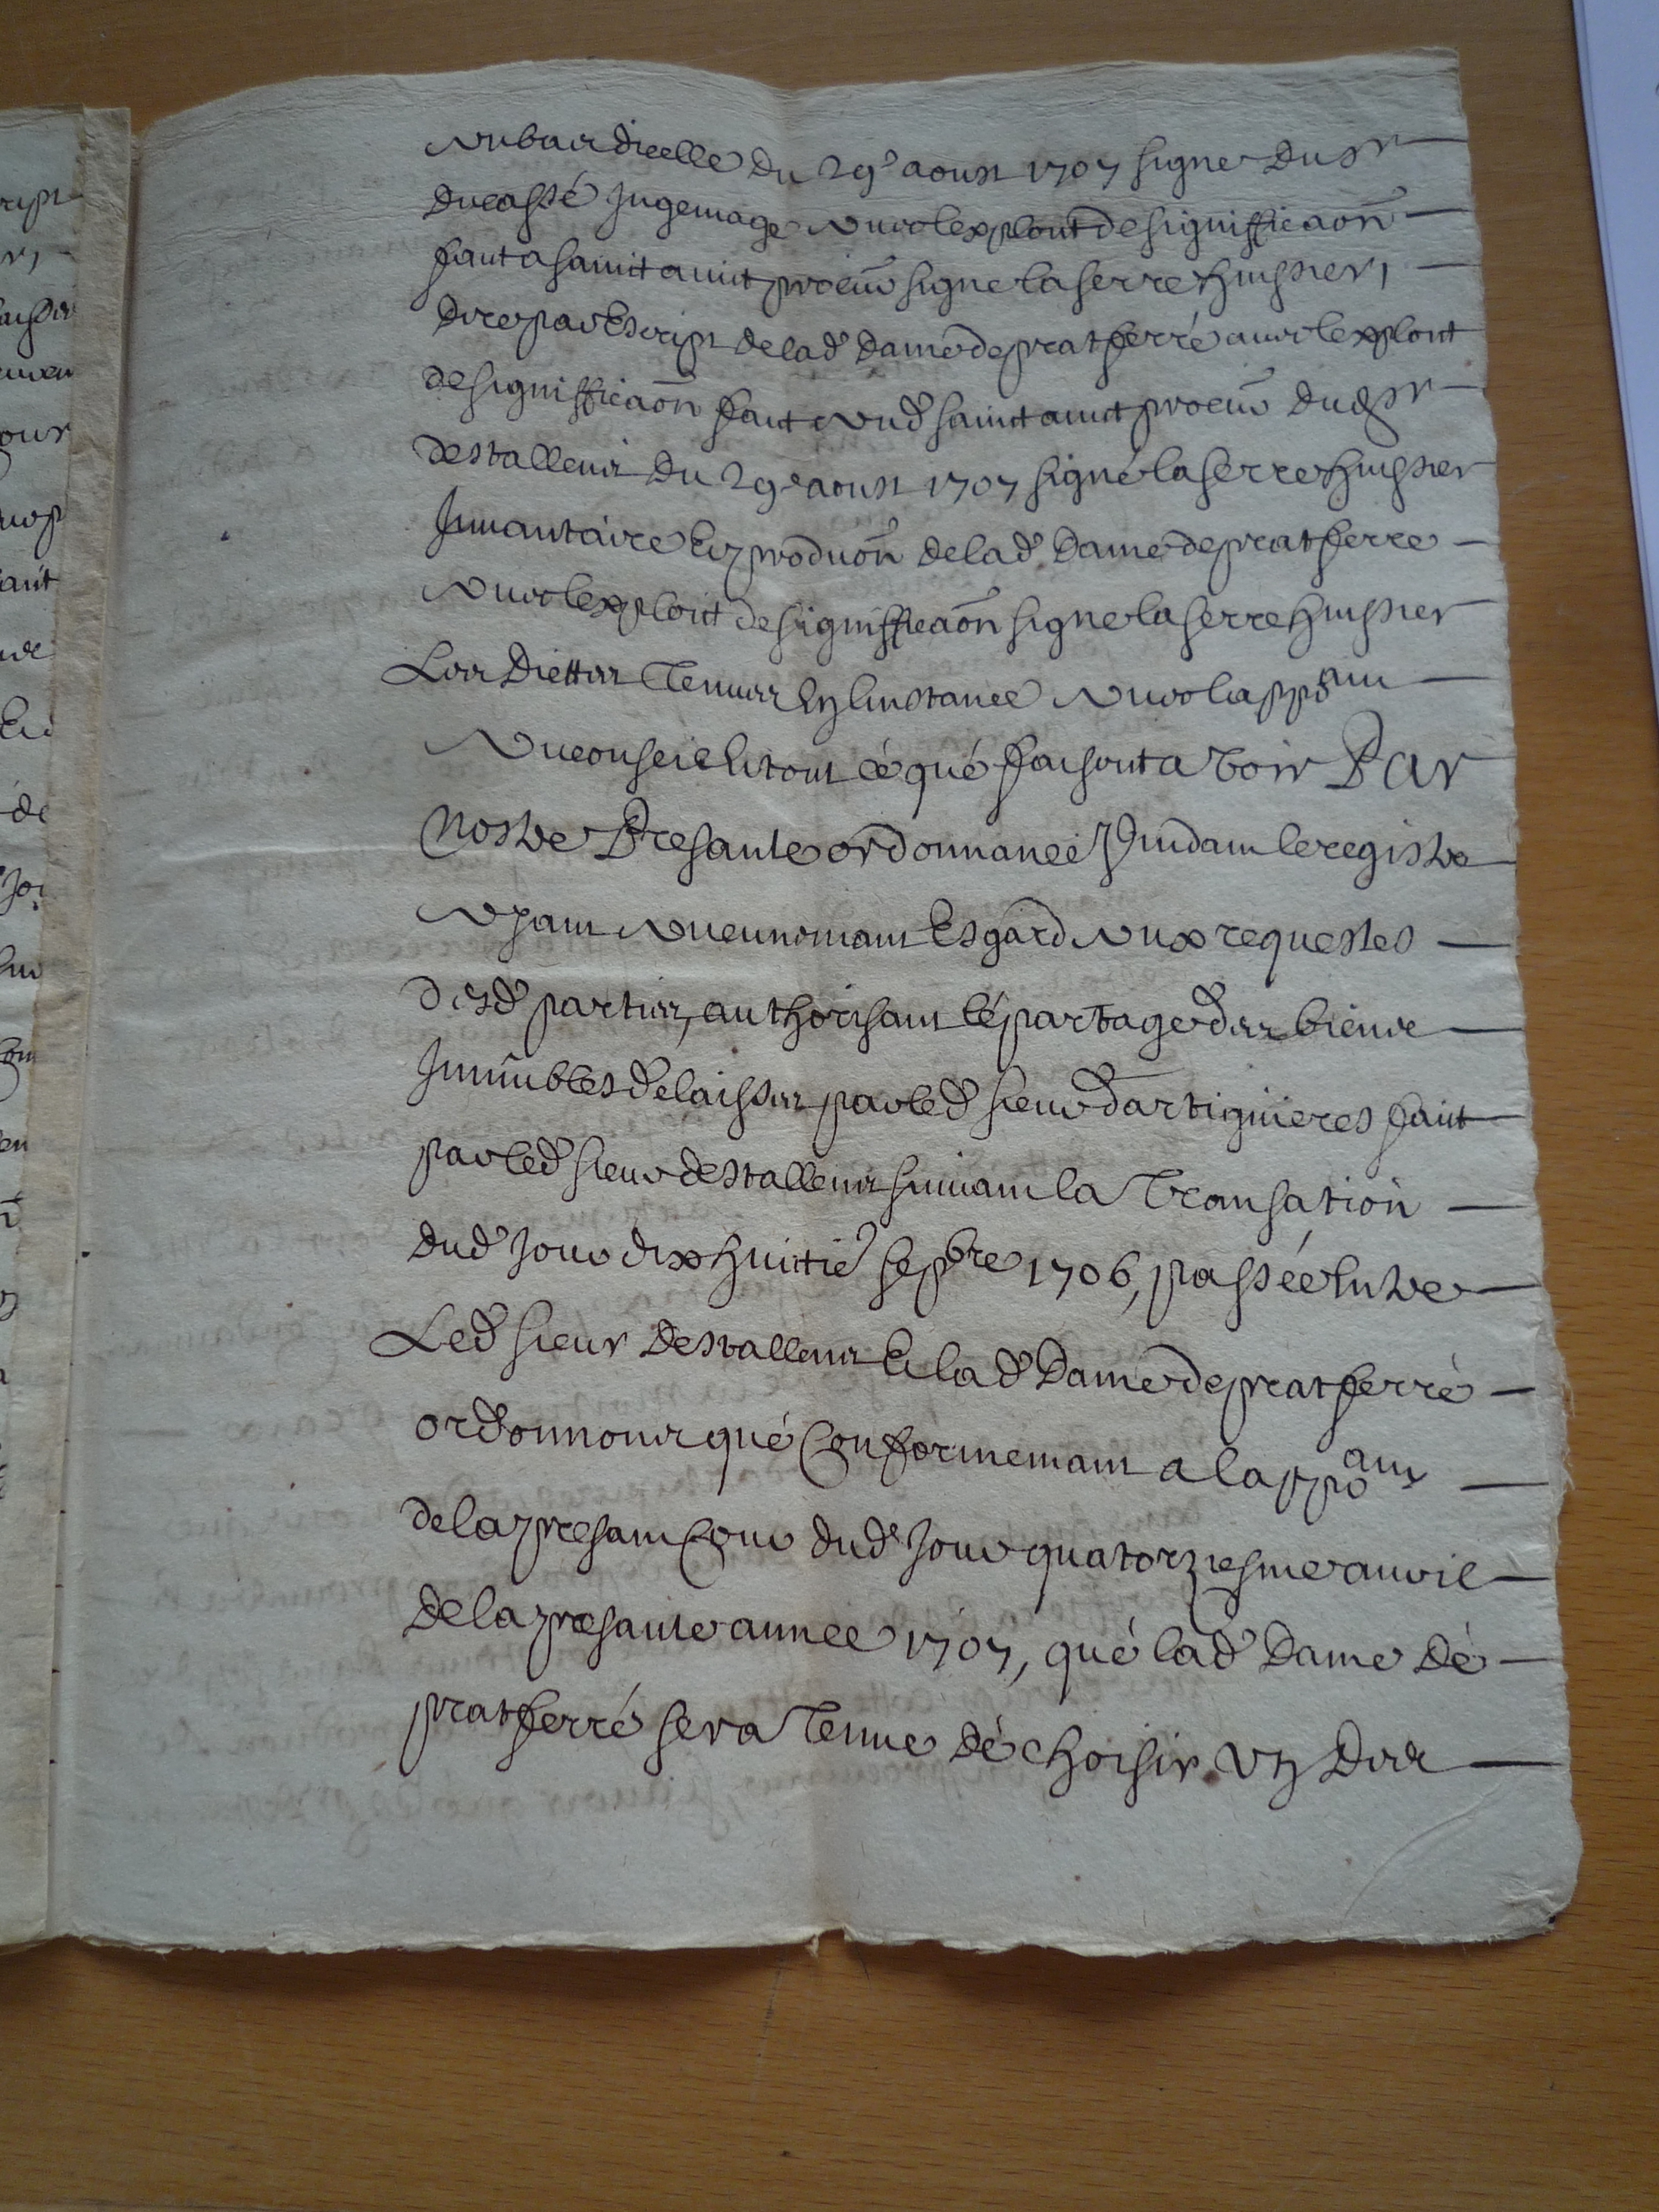 au bas d'icelle du 29e aoust 1707 signe du sr
ducassé Jugemage avec lexploit de signifficaon̄
fait a saint amit procur̄ signe laserre huissier,
dire par Escript de lad dame de prat ferré avec lexploit
de signifficaon̄ fait aud saint amit procur̄ dud sr
destallens du 29e aoust 1707 signé laserre huissier
Inuantaire En produon̄ de lad dame de prat ferre
avec lexploit de signifficaon̄ signe laserre huissier
Les dictes Tenues En linstance avec lapp̄oant
au conseil Et tout cé qué faisoit a voir Par
Nostre Presante ordonnance Vuidant le registre
ayant aucunemant Esgard aux requestes
desd parties, authorisant lé partage des biens
Immubles delaisses par led sieur dartiguieres fait
par led sieur destallens suiuant la Transation
dud Jour dix huitie sepbre 1706, passée Entre
Led sieur destallens Et lad Dame de prat ferré
ordonnons qué Conformemant a lapp̄oant
de la presant Cour dud Jour quatorziesme auril
de la presante annee 1707, qué lad Dame dé
prat ferré sera Tenue dé choisir un des